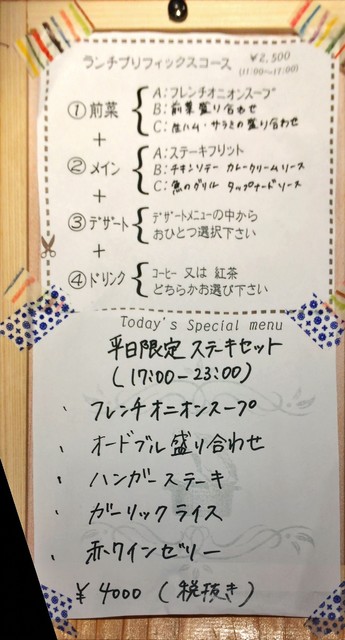 ランチプリフィックスコース ¥2,500
(11:00~17:00)
① 前菜
A:フレンチオニオンスープ
B:前菜盛り合わせ
C:生ハム・サラミの盛り合わせ
+
② メイン
A:ステーキフリット
B:チキンソテー カレークリームソース
C:魚のグリル タップナードソース
+
③ デザート
デザートメニューの中から
おひとつ選択下さい
+
④ ドリンク
コーヒー 又は 紅茶
どちらかお選び下さい
Today's Special menu
平日限定 ステーキセット
(17:00-23:00)
・ フレンチオニオンスープ
・ オードブル盛り合わせ
・ ハンガーステーキ
・ ガーリックライス
・ 赤ワインゼリー
¥ 4000 (税抜き)